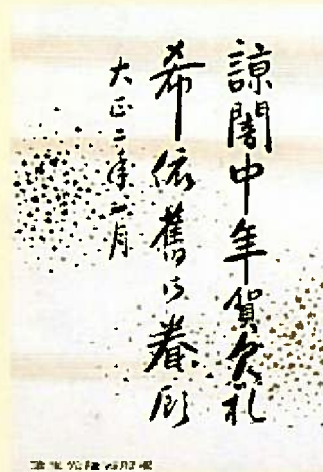 諒闇中年賀欠礼
希依舊御眷顧
大正二年一月